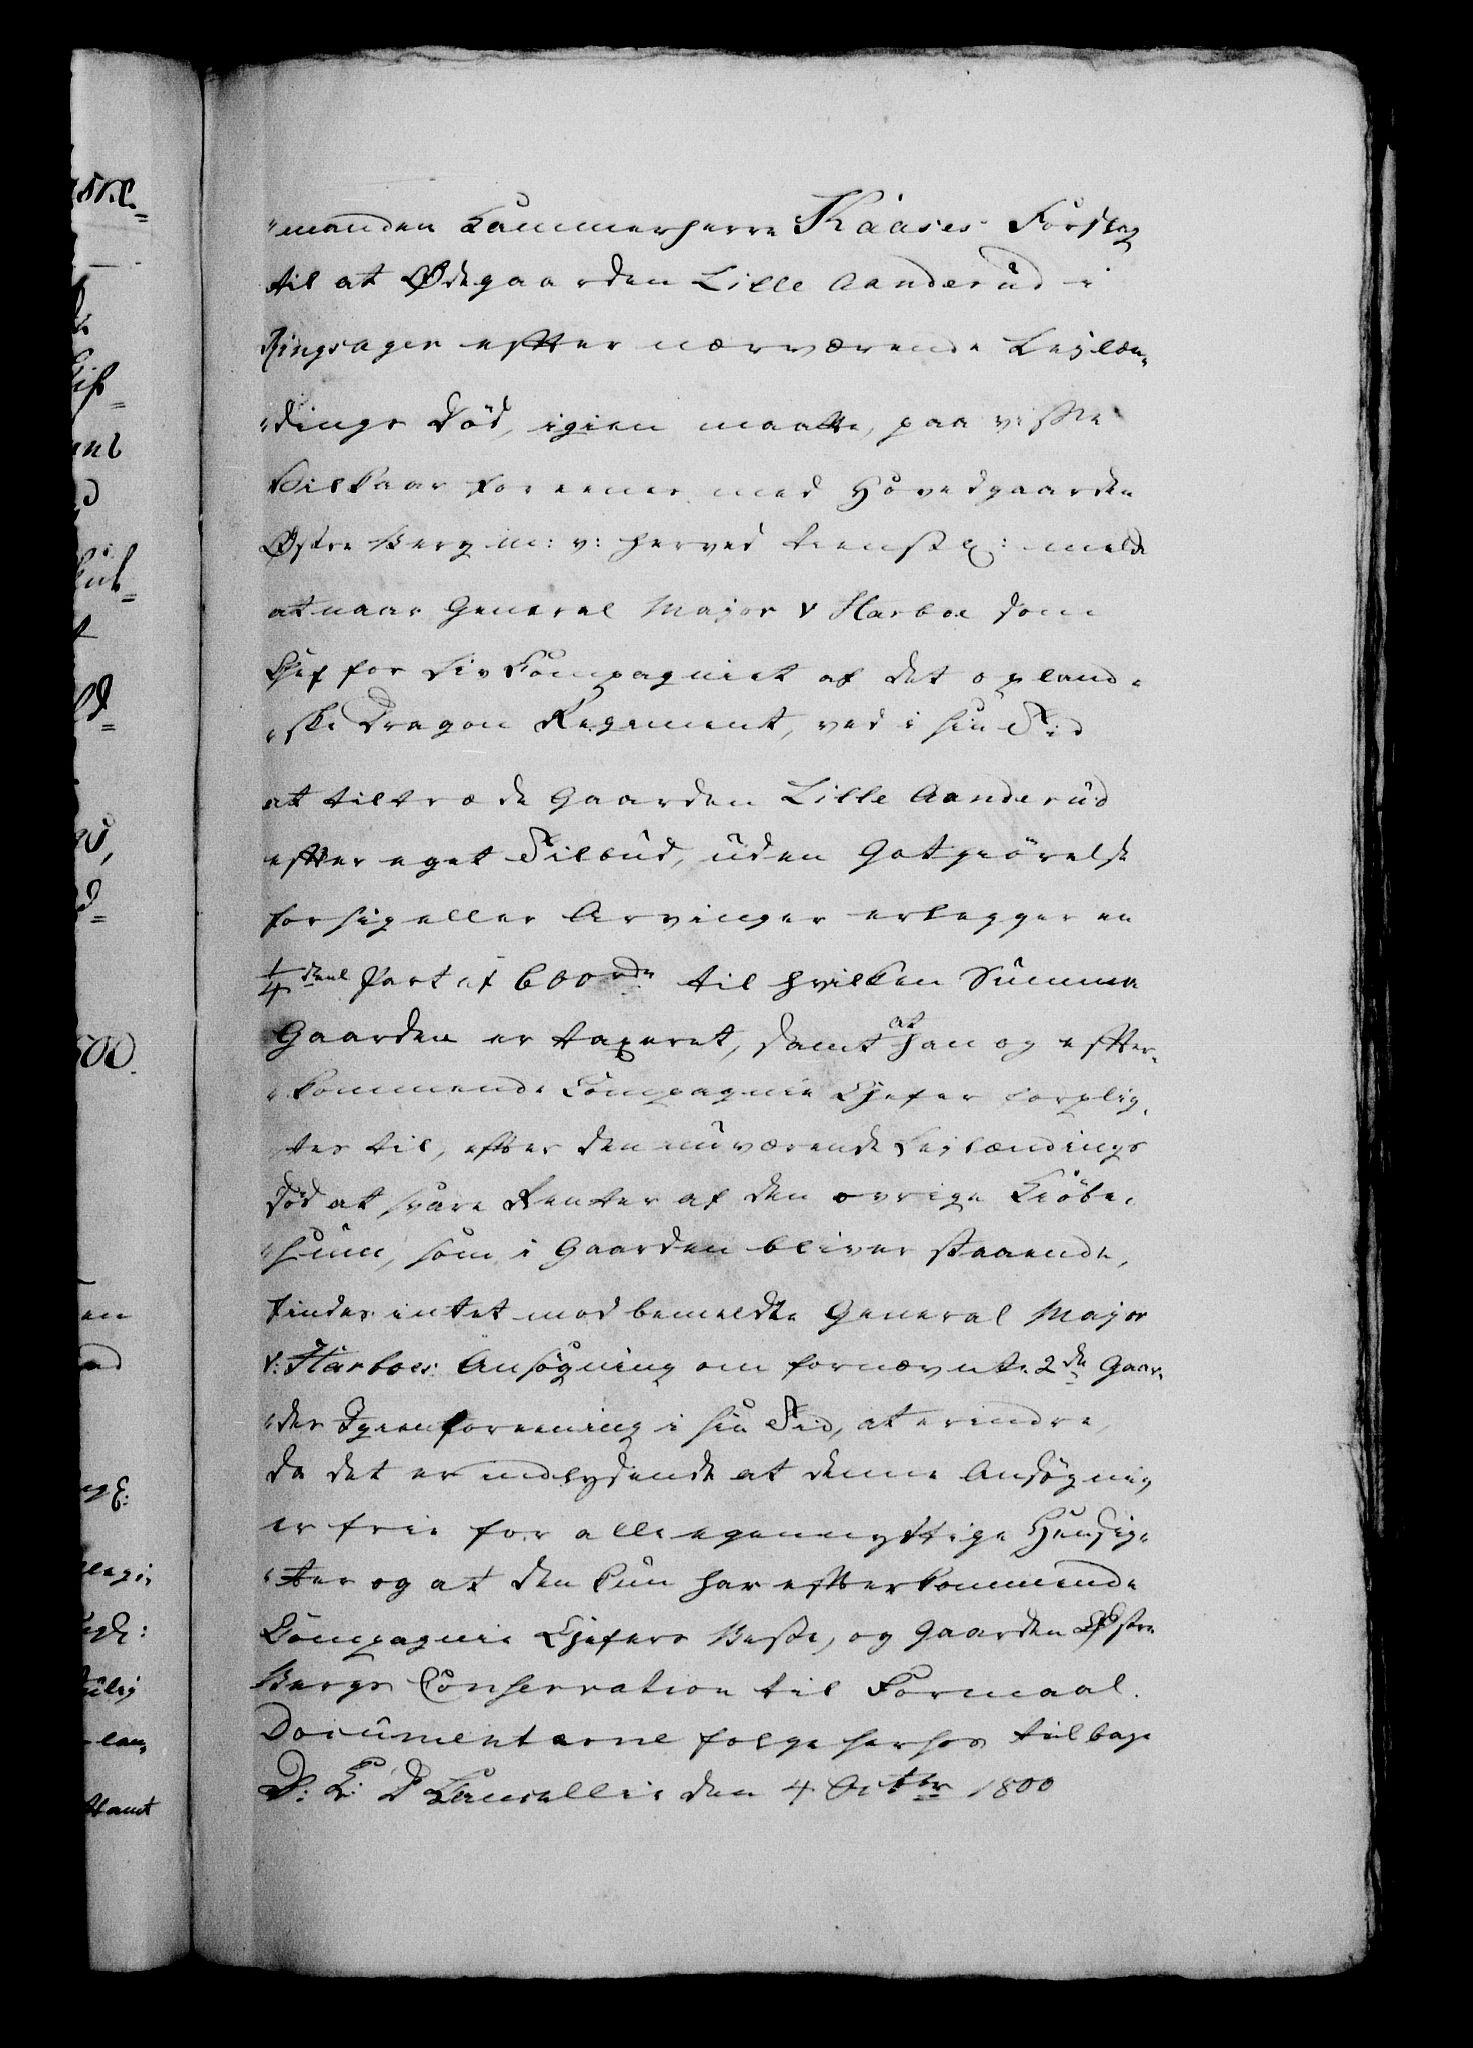 "manden Kammerherre Kaases Forslag
til at Ødegaarden Lille Aanderud i
Ringsager efter nærværende Leylæn-
"dings Død, igien maatte, paa visse
Vilkaar foreenes med Hovedgaarden
Østre Berg m: v: herved tienstl: melde
at naar General Major v Harboe som
Chef for Liv Compagniet af det opland-
"ske Dragon Regement, ved i sin Tid
at tiltræde Gaarden Lille Aanderud
efter eget Tilbud, uden Gotgiörelse
for sig eller Arvinger erlegger en
1/4 deel Part af 600 rdr til hvilken Summa
Gaarden er taxeret, samt at han og efter-
"kommende Compagnie Chefer forplig-
tes til, efter den nuværende Leylændings
Död at svare Renter af den övrige Kiöbe-
"sum, som i Gaarden bliver staaende,
findes intet mod bemeldte General Major
v: Harboes Ansögning om fornævnte 2de Gaar-
"des Igienforeening i sin Tid, at erindre,
da det er indlysende at denne Ansögning
er frie for alle egennyttige Hensig-
"ter og at den kun har efterkommende
Compagnie Chefers Beste, og Gaarden Østre
Bergs Conservation til Formaal.
Documenterne følge herhos tilbage
D: K: D Cancellie den 4 Octbr 1800